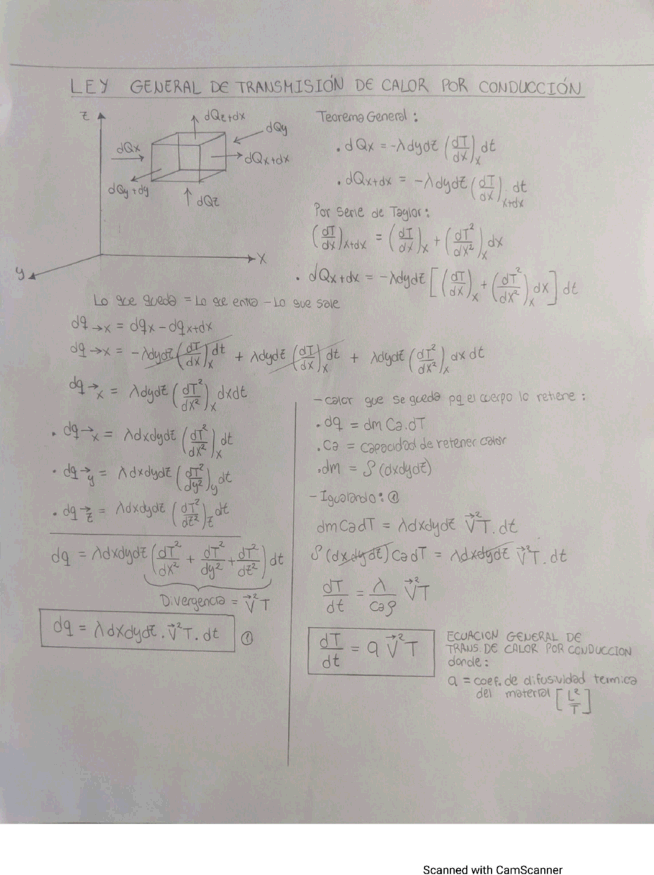 LEY GENERAL DE TRANSMISIÓN DE CALOR POR CONDUCCIÓN
Z
dQz+dx
dQy
dQx
dQx+dx
dQy+dy
dQz
X
y
Teorema General:
. dQx = -λdydz (dT/dx)x dt
. dQx+dx = -λdydz (dT/dx)x+dx dt
Por Serie de Taylor:
(dT/dx)x+dx = (dT/dx)x + (dT²/dx²)x dx
. dQx+dx = -λdydz [(dT/dx)x + (dT²/dx²)x dx] dt
Lo que queda = Lo que entra - Lo que sale
dq→x = dqx - dqx+dx
dq→x = -λdydz (dT/dx)x dt + λdydz (dT/dx)x dt + λdydz (dT²/dx²)x dx dt
dq→x = λdydz (dT²/dx²)x dxdt
. dq→x = λdxdydz (dT²/dx²)x dt
. dq→y = λdxdydz (dT²/dy²)y dt
. dq→z = λdxdydz (dT²/dz²)z dt
dq = λdxdydz (dT²/dx² + dT²/dy² + dT²/dz²) dt
Divergencia = ∇⃗²T
dq = λdxdydz . ∇⃗²T . dt ①
- calor que se queda pq el cuerpo lo retiene:
. dq = dm Ca . dT
. Ca = capacidad de retener calor
. dm = ρ (dxdydz)
- Igualando: ①
dm Ca dT = λdxdydz ∇⃗²T . dt
ρ (dxdydz) Ca dT = λdxdydz ∇⃗²T . dt
dT/dt = λ/Caρ ∇⃗²T
dT/dt = a ∇⃗²T
ECUACION GENERAL DE
TRANS. DE CALOR POR CONDUCCION
donde:
a = coef. de difusividad termica
del material [L²/T]
Scanned with CamScanner